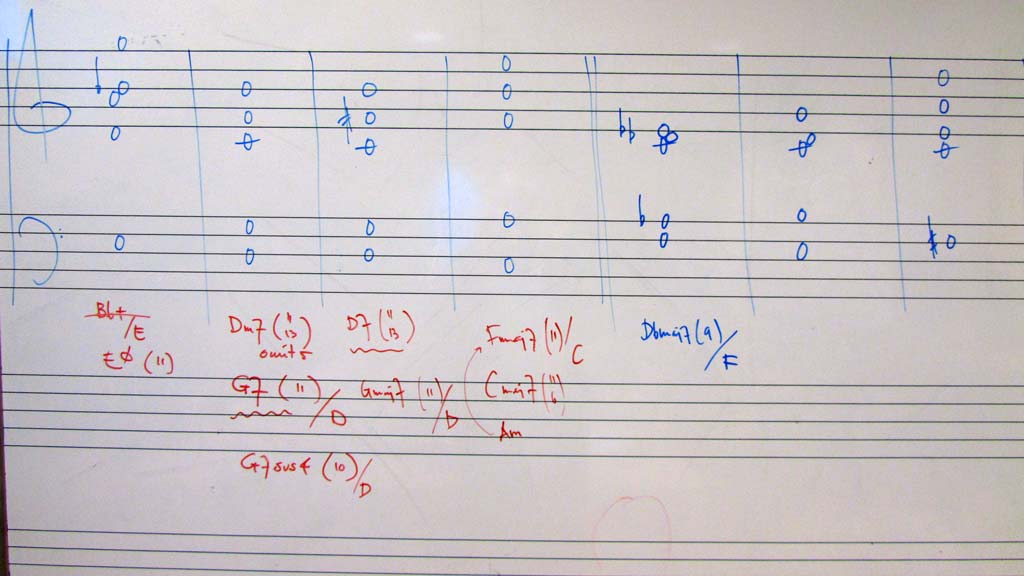 Bb+/E
EØ (11)
Dm7 (11 13)
omit5
G7 (11)/D
G7sus4 (10)/D
D7 (11 13)
Gmaj7 (11)/D
Fmaj7 (11)/C
Cmaj7 (11 6)
Am
Dbmaj7 (9)/F